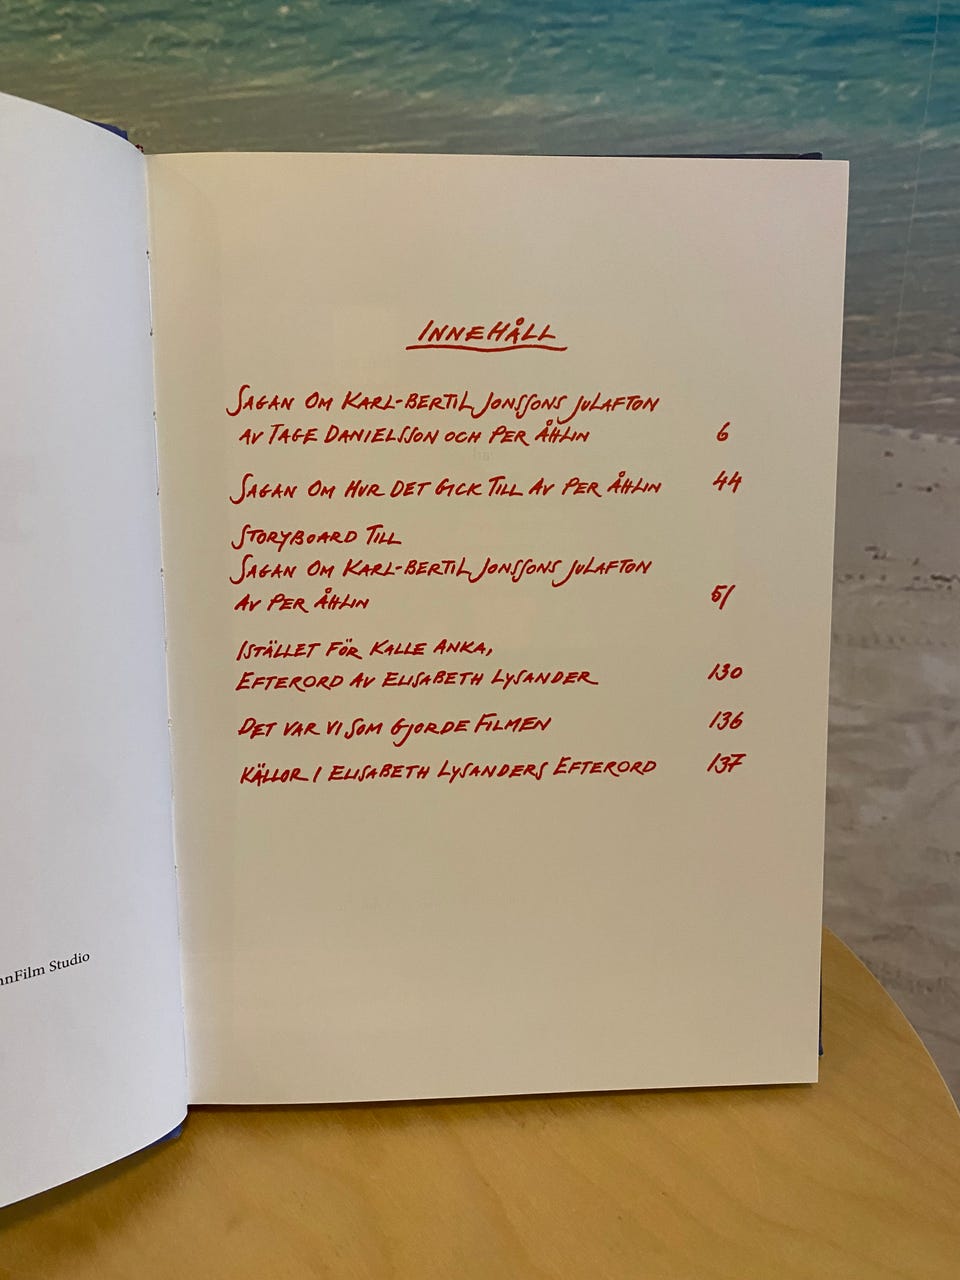 nnFilm Studio
INNEHÅLL
SAGAN OM KARL-BERTIL JONSSONS JULAFTON
AV TAGE DANIELSSON OCH PER ÅHLIN 6
SAGAN OM HUR DET GICK TILL AV PER ÅHLIN 44
STORYBOARD TILL
SAGAN OM KARL-BERTIL JONSSONS JULAFTON
AV PER ÅHLIN 51
ISTÄLLET FÖR KALLE ANKA,
EFTERORD AV ELISABETH LYSANDER 130
DET VAR VI SOM GJORDE FILMEN 136
KÄLLOR I ELISABETH LYSANDERS EFTERORD 137